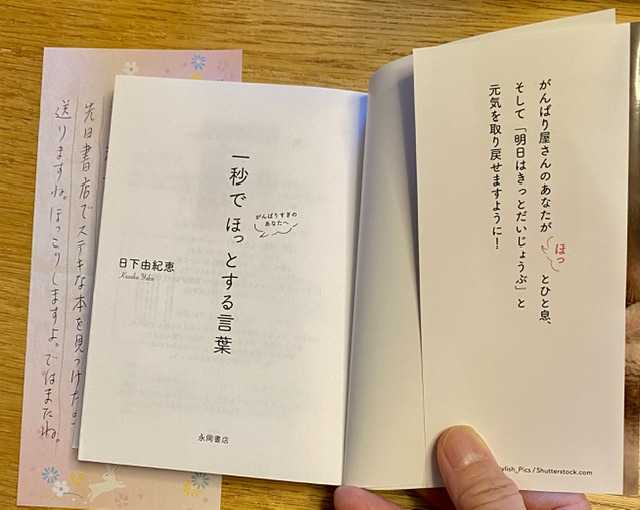 がんばり屋さんのあなたが ほっ とひと息、
そして「明日はきっとだいじょうぶ」と
元気を取り戻せますように!
ylish_Pics / Shutterstock.com
がんばりすぎの
あなたへ
一秒でほっとする言葉
日下由紀恵
Kusaka Yukie
永岡書店
先日書店でステキな本を見つけた
送りますね。ほっこりしますよ。ではまたね。